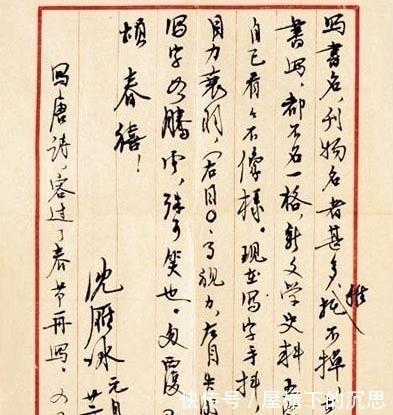 写书名,刊物名者甚多,推不掉,
书写,都不名一格,新文学史料
自己看看不像样。现在写字手抖
目力衰弱,(右目0.
写字如腾云,殊可笑也。匆覆
颂
春禧!
沈雁冰 元月
写唐诗,容过了春节再写。又及
快传号/屋檐下的沉思